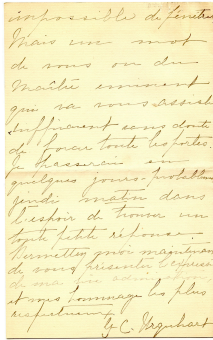 impossible de pénétrer
Mais un mot
de vous ou du
Maître éminent
qui va vous
suffiraient sans doute
de toute les portes.
Je passerais en
quelques jours - probablement
jeudi matin dans
l'espoir de trouver un
toute petite réponse.
Permettez moi maintenant
de vous présenter
de ma
et mes hommages les plus
respectueux
C. Urquhart